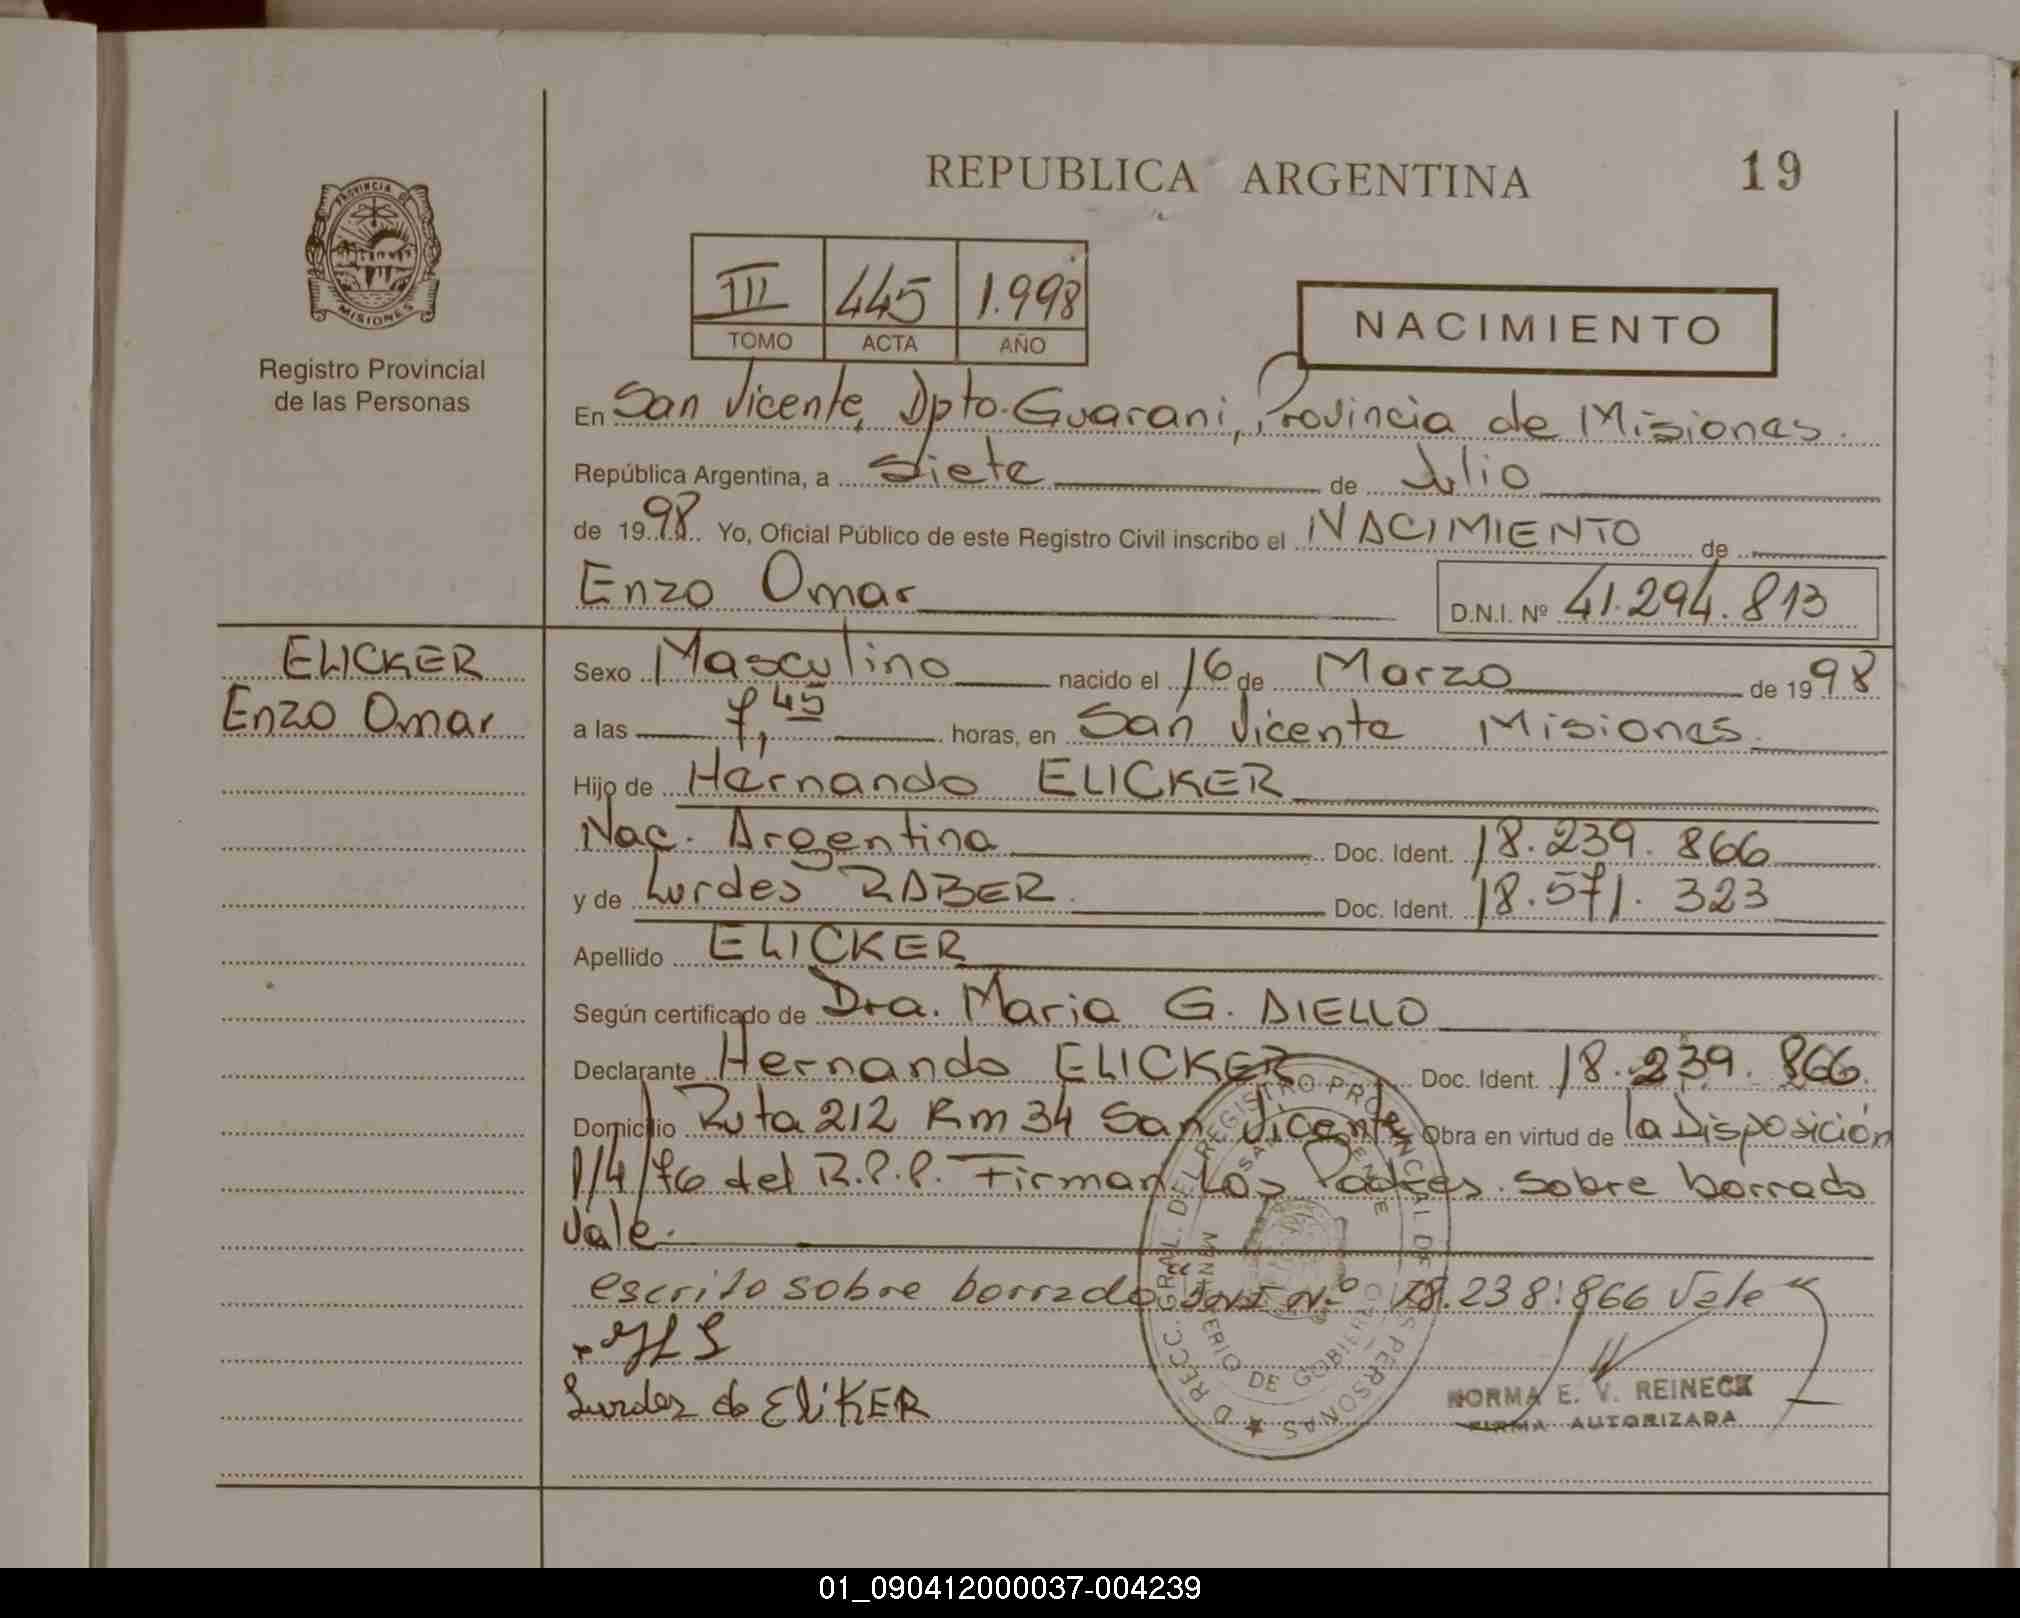 REPUBLICA ARGENTINA
19
PROVINCIA DE
MISIONES
Registro Provincial
de las Personas
III 445 1.998
TOMO ACTA AÑO
NACIMIENTO
En San Vicente, Dpto. Guarani, Provincia de Misiones.
República Argentina, a Siete de Julio
de 1998 Yo, Oficial Público de este Registro Civil inscribo el NACIMIENTO de
Enzo Omar D.N.I. Nº 41.294.813
ELICKER
Enzo Omar
Sexo Masculino nacido el 16 de Marzo de 1998
a las 7,45 horas, en San Vicente Misiones.
Hijo de Hernando ELICKER
Nac. Argentina Doc. Ident. 18.239.866
y de Lurdes RABER Doc. Ident. 18.571.323
Apellido ELICKER
Según certificado de Dra. Maria G. DIELLO
Declarante Hernando ELICKER Doc. Ident. 18.239.866.
Domicilio Ruta 212 Km 34 San Vicente Obra en virtud de la Disposición
1/4/76 del R.P.P. Firman Los Padres. Sobre borrado
Vale.
escrito sobre borrado Nº 18.238.866 Vale"
Lurdes de EliKER
NORMA E. V. REINECK
FIRMA AUTORIZADA
REGISTRO PROVINCIAL DE LAS PERSONAS
MINISTERIO DE GOBIERNO
SAN VICENTE
01_090412000037-004239